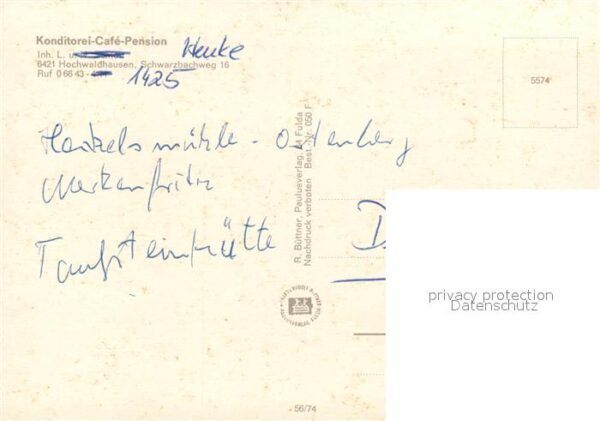 Konditorei-Café-Pension
Inh. L. u. Henke
6421 Hochwaldhausen, Schwarzbachweg 16
Ruf 0 66 43 - 1425
5574
Ortenberg
Merkenfritz
Taufsteinhütte
R. Büttner, Paulusverlag, 64 Fulda
Nachdruck verboten Best.-Nr. 050 F
D
privacy protection
Datenschutz
56/74